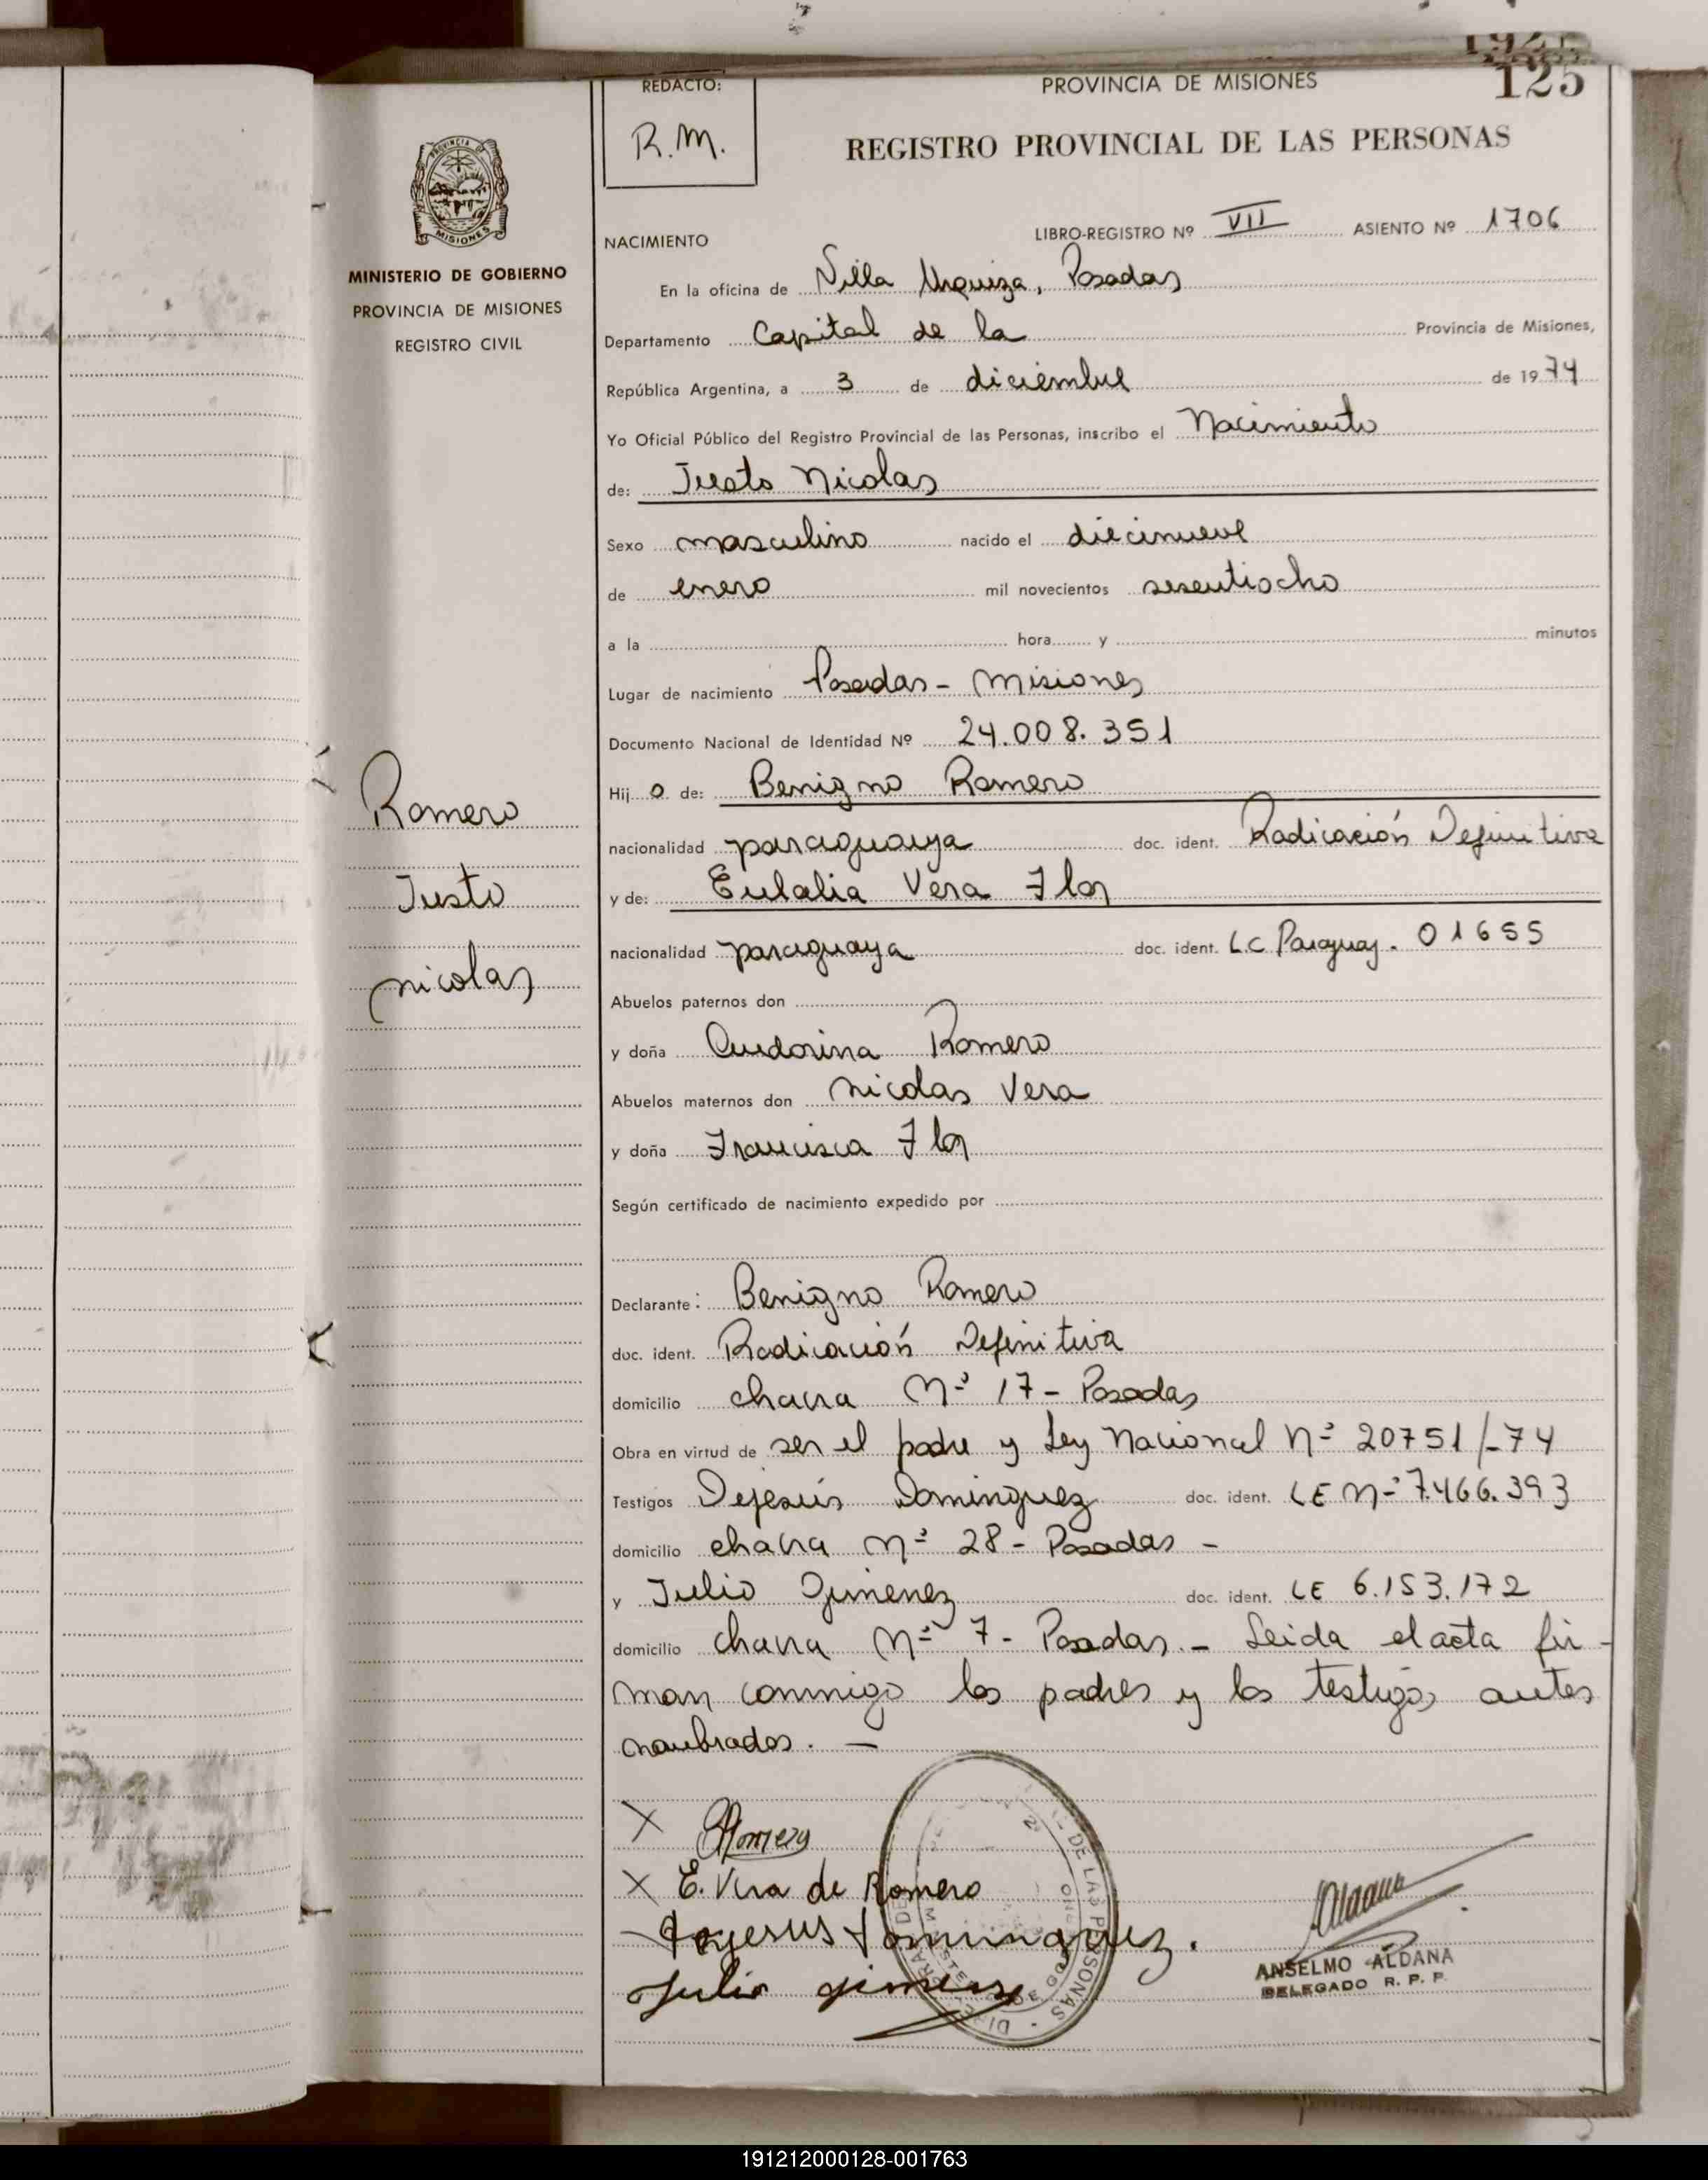 125
REDACTO:
R.M.
PROVINCIA DE MISIONES
REGISTRO PROVINCIAL DE LAS PERSONAS
PROVINCIA DE
MISIONES
MINISTERIO DE GOBIERNO
PROVINCIA DE MISIONES
REGISTRO CIVIL
NACIMIENTO LIBRO-REGISTRO Nº VII ASIENTO Nº 1706
En la oficina de Villa Urquiza, Posadas
Departamento Capital de la Provincia de Misiones,
República Argentina, a 3 de diciembre de 1974
Yo Oficial Público del Registro Provincial de las Personas, inscribo el Nacimiento
de: Justo Nicolas
Sexo masculino nacido el diecinueve
de enero mil novecientos sesentiocho
a la hora y minutos
Lugar de nacimiento Posadas - Misiones
Documento Nacional de Identidad Nº 24.008.351
Hijo de: Benigno Romero
Romero
nacionalidad paraguaya doc. ident. Radicación Definitiva
Justo
y de: Eulalia Vera Flor
nicolas
nacionalidad paraguaya doc. ident. L.C Paraguay. 01655
Abuelos paternos don
y doña Romero
Abuelos maternos don Nicolas Vera
y doña Francisca Flor
Según certificado de nacimiento expedido por
Declarante: Benigno Romero
doc. ident. Radicación Definitiva
domicilio chacra Nº 17 - Posadas
Obra en virtud de ser el padre y Ley Nacional Nº 20751/-74
Testigos Dejesús Dominguez doc. ident. LE Nº 7.466.393
domicilio chacra Nº 28 - Posadas -
y Julio Gimenez doc. ident. LE 6.153.172
domicilio chacra Nº 7 - Posadas. - Leida el acta fir-
man conmigo los padres y los testigos antes
nombrados. -
X Romero
X E. Vera de Romero
Dejesus Dominguez.
Julio gimenez
Aldana
ANSELMO ALDANA
DELEGADO R. P. P.
DE LAS PERSONAS
191212000128-001763